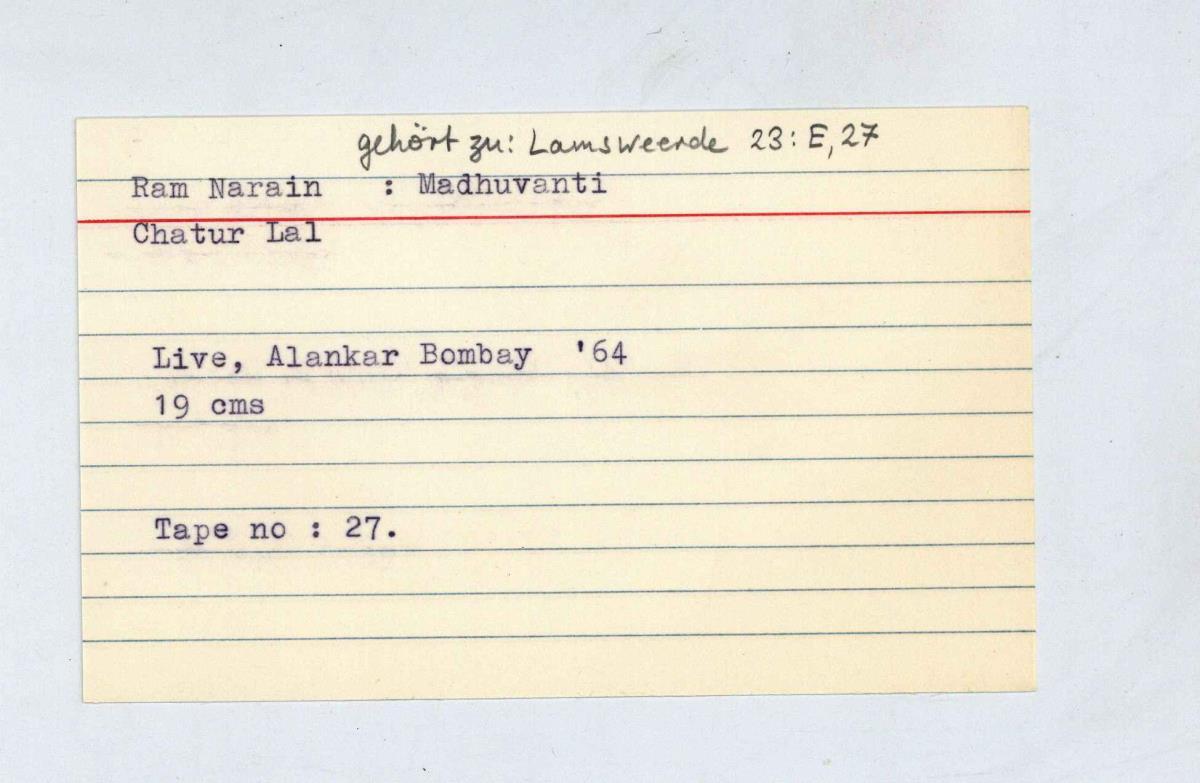 gehört zu: Lamsweerde 23: E, 27
Ram Narain : Madhuvanti
Chatur Lal
Live, Alankar Bombay '64
19 cms
Tape no : 27.